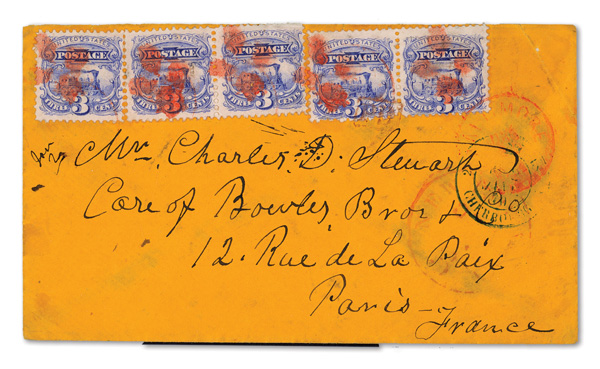 UNITED STATES UNITED STATES UNITED STATES UNITED STATES UNITED STATES
POSTAGE POSTAGE POSTAGE POSTAGE POSTAGE
THREE 3 CENTS THREE 3 CENTS THREE 3 CENTS THREE 3 CENTS THREE 3 CENTS
Mr. Charles D. Steuart
Care of Bowles Bros &
12. Rue de La Paix
Paris-
France
CHERBOURG